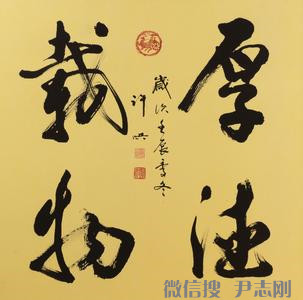 厚德
載物
歲次壬辰季冬
许
微信搜 尹志刚